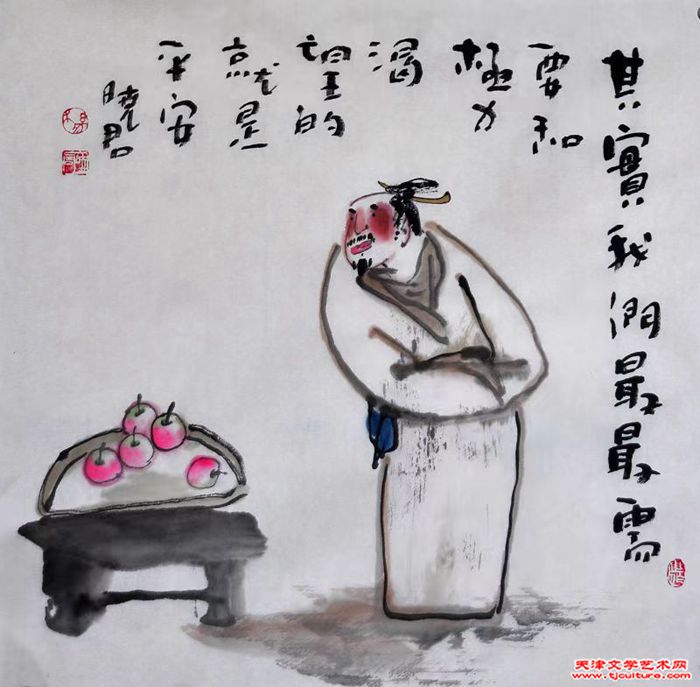 其實我们最最需
要和
极力
渴
望的
就是
平安
晓君
天津文学艺术网
www.tjculture.com